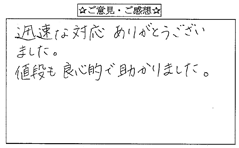 ☆ご意見・ご感想☆
迅速な対応 ありがとうござい
ました。
値段も良心的で助かりました。